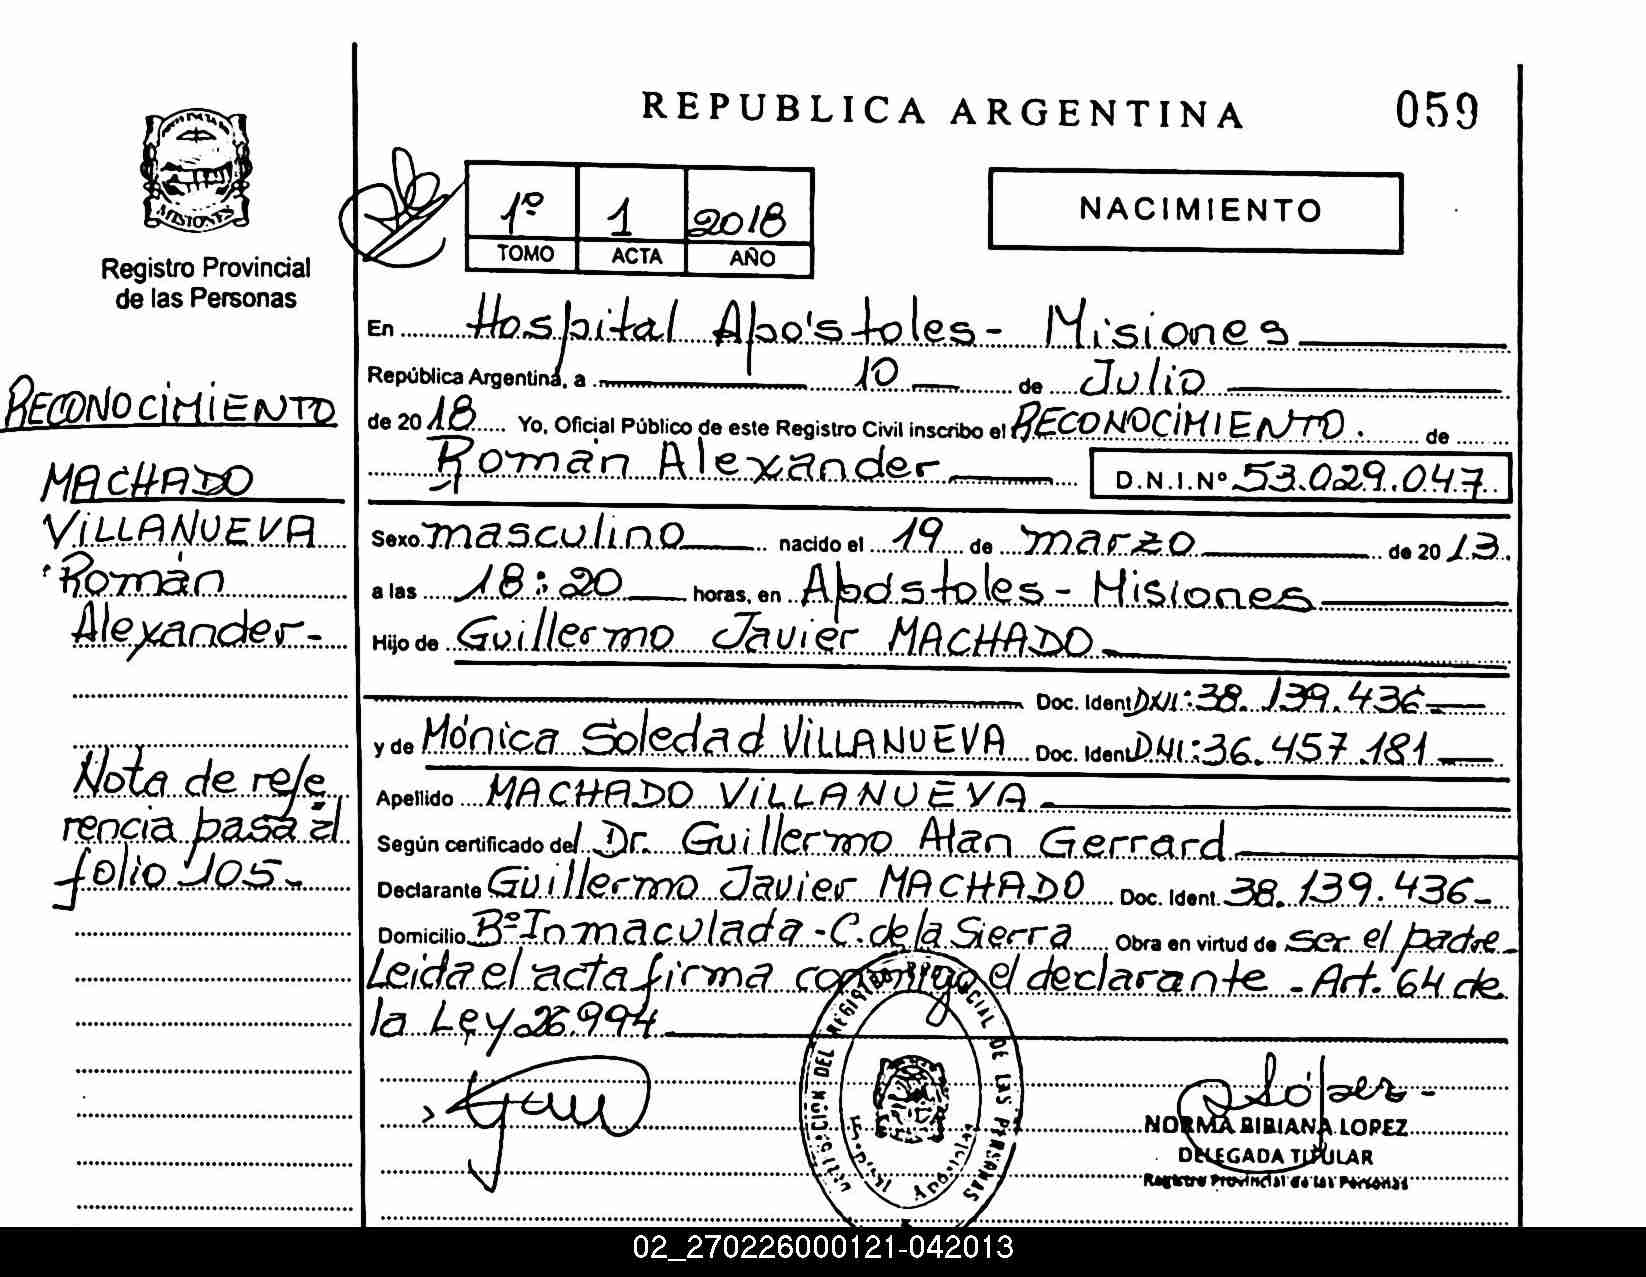 REPUBLICA ARGENTINA
059
MISIONES
Registro Provincial
de las Personas
1º 1 2018
TOMO ACTA AÑO
NACIMIENTO
RECONOCIMIENTO
MACHADO
VILLANUEVA
Román
Alexander-
Nota de refe
rencia pasa al
folio 105-
En Hospital Apóstoles - Misiones
República Argentina, a 10 de Julio
de 2018 Yo, Oficial Público de este Registro Civil inscribo el RECONOCIMIENTO. de
Román Alexander D.N.I.Nº 53.029.047
Sexo masculino nacido el 19 de marzo de 2013.
a las 18:20 horas, en Apóstoles - Misiones
Hijo de Guillermo Javier MACHADO
Doc. Ident DNI: 38.139.436
y de Mónica Soledad VILLANUEVA Doc. Ident DNI: 36.457.181
Apellido MACHADO VILLANUEVA
Según certificado del Dr. Guillermo Alan Gerrard
Declarante Guillermo Javier MACHADO Doc. Ident. 38.139.436-
Domicilio Bº Inmaculada - C. de la Sierra Obra en virtud de ser el padre-
Leida el acta firma conmigo el declarante - Art. 64 de
la Ley 26.994
DEL REGISTRO PROVINCIAL DE LAS PERSONAS
López-
NORMA BIBIANA LOPEZ
DELEGADA TITULAR
Registro Provincial de las Personas
02_270226000121-042013